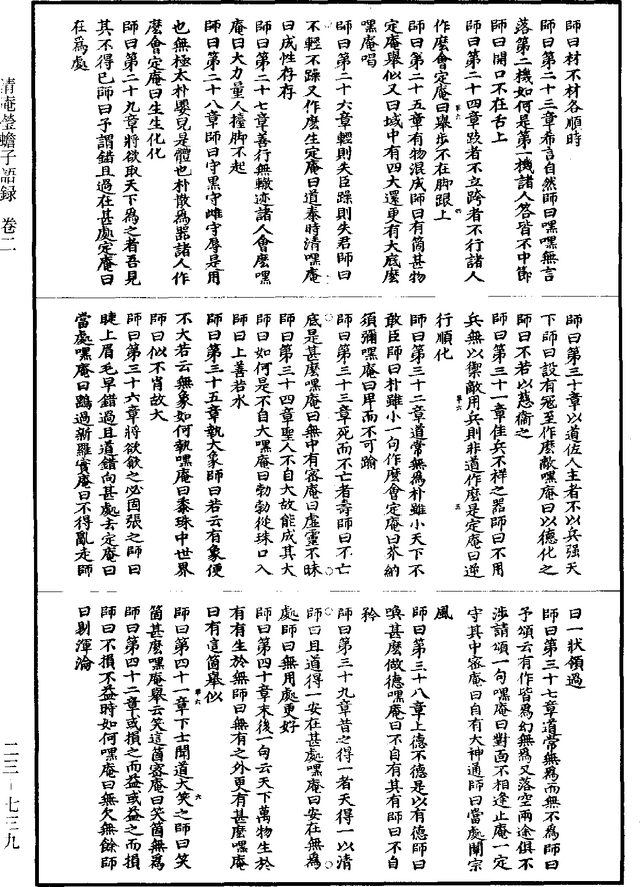 師曰材不材各順時
師曰第二十三章希言自然師曰嘿嘿無言
落第二機如何是第一機諸人答皆不中節
師曰開口不在舌上
師曰第二十四章跂者不立跨者不行諸人
作麼會定庵曰舉步不在腳跟上
師曰第二十五章有物混成師曰有箇甚物
定庵舉似又曰域中有四大還更有大底麼
嘿庵喝
師曰第二十六章輕則失臣躁則失君師曰
不輕不躁又作麼生定庵曰道泰時清嘿庵
曰成性存存
師曰第二十七章善行無轍迹諸人會麼嘿
庵曰大力量人擡腳不起
師曰第二十八章師曰守黑守雌守辱是用
也無極太朴嬰兒是體也朴散為器諸人作
麼會定庵曰生生化化
師曰第二十九章將欲取天下為之者吾見
其不得已師曰予謂錯且過在甚處定庵曰
在為處
師曰第三十章以道佐人主者不以兵強天
下師曰設有冦至作麼敵嘿庵曰以德化之
師曰不若以慈衞之
師曰第三十一章佳兵不祥之器師曰不用
兵無以禦敵用兵則非道作麼是定庵曰逆
行順化
師曰第三十二章道常無為朴雖小天下不
敢臣師曰朴雖小一句作麼會定庵曰芥納
須彌嘿庵曰卑而不可踰
師曰第三十三章死而不亡者壽師曰不亡
底是甚麼嘿庵曰無中有密庵曰虛靈不昧
師曰第三十四章聖人不自大故能成其大
師曰如何是不自大嘿庵曰勃勃從珠口入
師曰上善若水
師曰第三十五章執大象師曰若云有象便
不大若云無象如何執嘿庵曰黍珠中世界
師曰似不肖故大
師曰第三十六章將欲歙之必固張之師曰
睫上眉毛早錯過且道錯向甚處去定庵曰
當處嘿庵曰鷂過新羅實庵曰不得亂走師
曰一狀領過
師曰第三十七章道常無為而無不為師曰
予頌云有作皆為幻無為又落空兩途俱不
涉請頌一句嘿庵曰對面不相逢止庵一定
守其中密庵曰自有大神通師曰當處闡宗
風
師曰第三十八章上德不德是以有德師曰
喚甚麼做德嘿庵曰不自有其有師曰不自
矜
師曰第三十九章昔之得一者天得一以清
師曰且道得一安在甚處嘿庵曰安在無為
處師曰無用處更好
師曰第四十章末後一句云天下萬物生於
有有生於無師曰無有之外更有甚麼嘿庵
曰有這箇舉似
師曰第四十一章下士聞道大笑之師曰笑
箇甚麼嘿庵舉云笑這箇密庵曰笑箇無為
師曰第四十二章或損之而益或益之而損
師曰不損不益時如何嘿庵曰無欠無餘師
曰剔渾淪
清庵瑩蟾子語録　卷二
二三－七三九